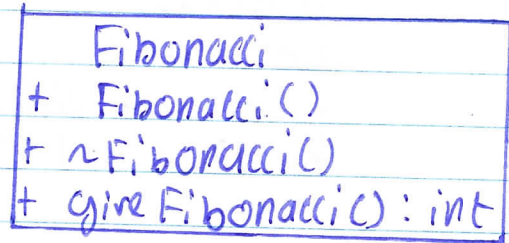 Fibonacci
+ Fibonacci()
+ ~Fibonacci()
+ giveFibonacci() : int